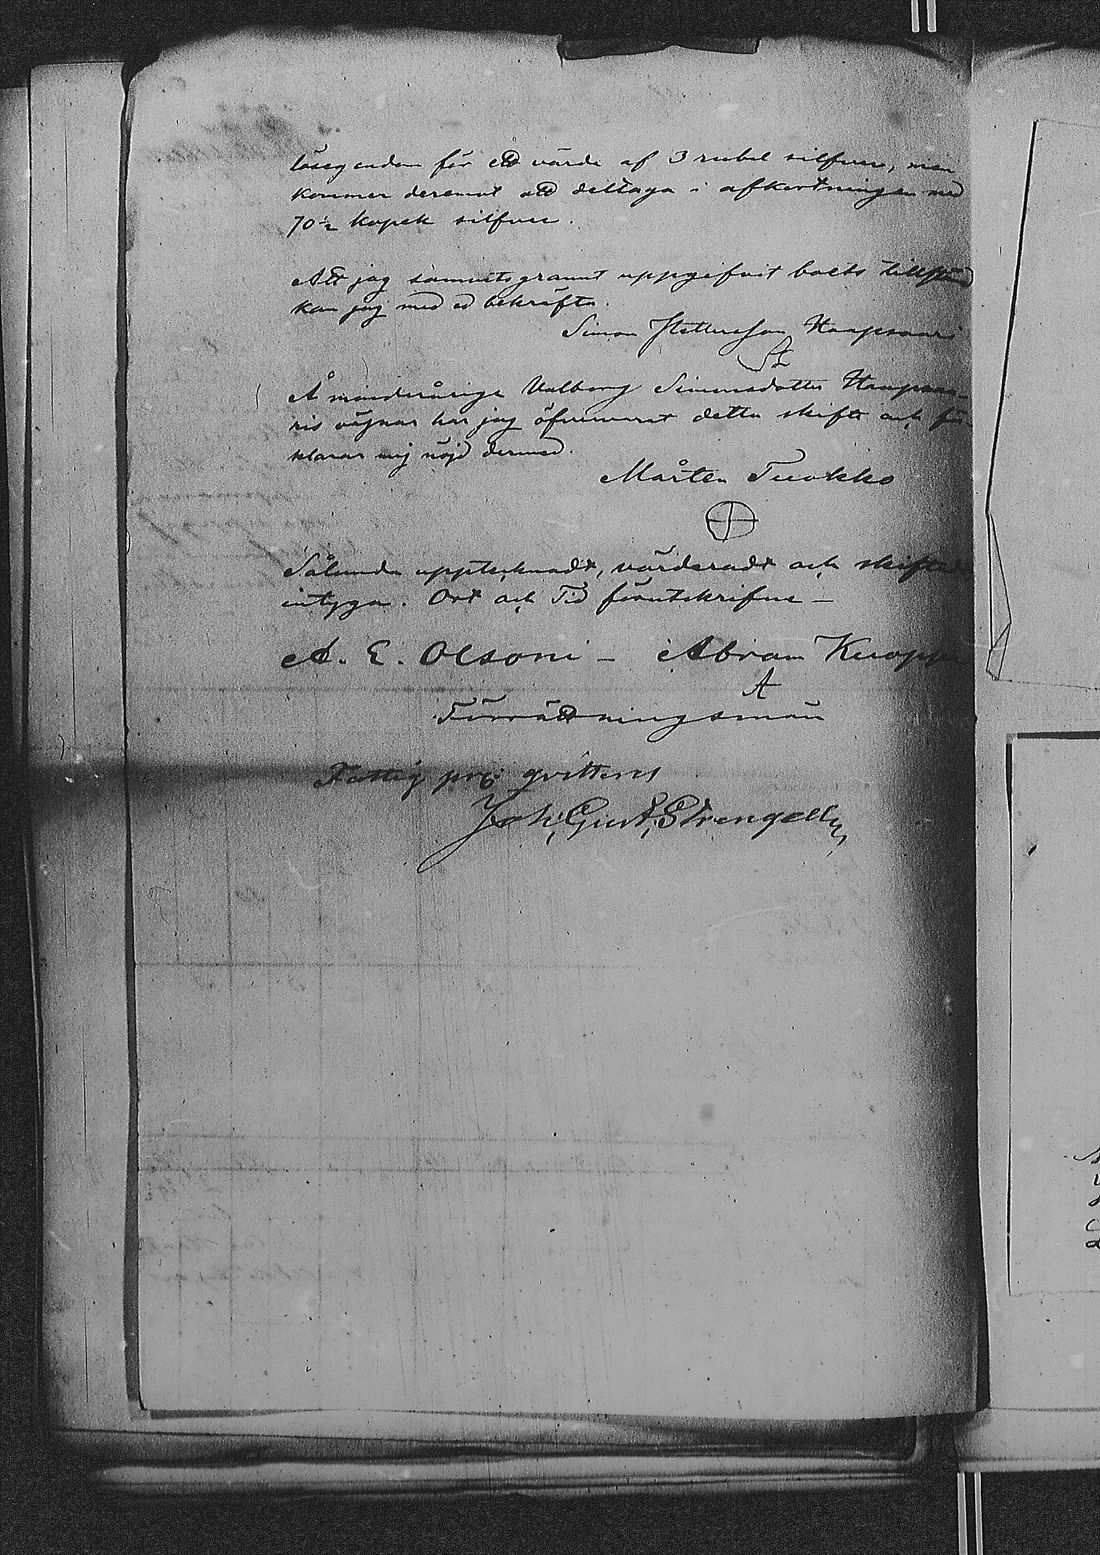 lösegendom för ett värde af 3 rubel silfver, men
kommer deremot att deltaga i afkortningen med
70 ½ kopek silfver.
Att jag samvetsgrannt uppgifvit boets tillstånd
kan jag med ed bekräfta.
Simon Haapsaari
Å minderåriga Valborg Simonsdotter Haapsaa-
ris vägnar har jag öfvervarat detta skifte och för-
klarar mig nöjd dermed.
Mårten Tuokko
Sålunda upptecknadt, värderadt och skiftadt
intyga. Ort och Tid förutskrifne —
A. E. Olsoni — Abram Kuoppa
A
Förrättningsmän
Fattig pro: qvitteras
Joh: Gust: Strengell